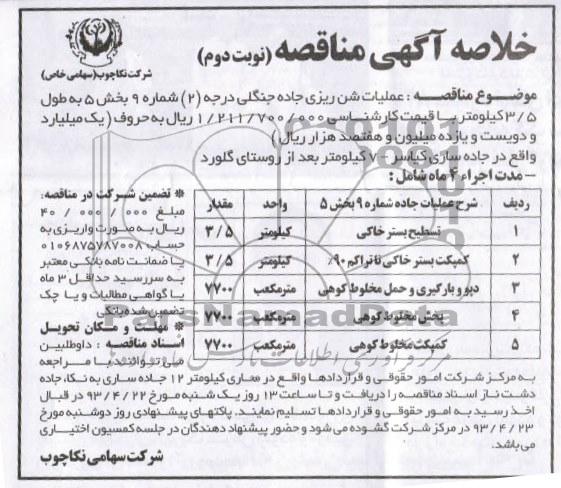 خلاصه آگهی مناقصه (نوبت دوم)
شرکت نکاچوب (سهامی خاص)
موضوع مناقصه : عملیات شن ریزی جاده جنگلی درجه (۲) شماره ۹ بخش ۵ به طول
۳/۵ کیلومتر با قیمت کارشناسی ۱/۲۱۱/۷۰۰/۰۰۰ ریال به حروف ( یک میلیارد
و دویست و یازده میلیون و هفتصد هزار ریال )
واقع در جاده ساری کیاسر - ۷ کیلومتر بعد از روستای گلورد
- مدت اجراء ۴ ماه شامل :
ردیف شرح عملیات جاده شماره ۹ بخش ۵ واحد مقدار
۱ تسطیح بستر خاکی کیلومتر ۳/۵
۲ کمپکت بستر خاکی تا تراکم ۹۰٪ کیلومتر ۳/۵
۳ دپو و بارگیری و حمل مخلوط کوهی مترمکعب ۷۷۰۰
۴ پخش مخلوط کوهی مترمکعب ۷۷۰۰
۵ کمپکت مخلوط کوهی مترمکعب ۷۷۰۰
* تضمین شرکت در مناقصه:
مبلغ ۴۰/۰۰۰/۰۰۰
ریال به صورت واریزی به
حساب ۰۱۰۶۸۷۵۷۸۷۰۰۸
یا ضمانت نامه بانکی معتبر
به سررسید حداقل ۳ ماه
یا گواهی مطالبات و یا چک
تضمین شده بانکی
* مهلت و مکان تحویل
اسناد مناقصه : داوطلبین
می توانند با مراجعه
به مرکز شرکت امور حقوقی و قراردادها واقع در معاری کیلومتر ۱۲ جاده ساری به نکا، جاده
دشت ناز اسناد مناقصه را دریافت و تا ساعت ۱۳ روز یک شنبه مورخ ۹۳/۴/۲۲ در قبال
اخذ رسید به امور حقوقی و قراردادها تسلیم نمایند. پاکتهای پیشنهادی روز دوشنبه مورخ
۹۳/۴/۲۳ در مرکز شرکت گشوده می شود و حضور پیشنهاد دهندگان در جلسه کمسیون اختیاری
می باشد.
شرکت سهامی نکاچوب
ParsNamadData